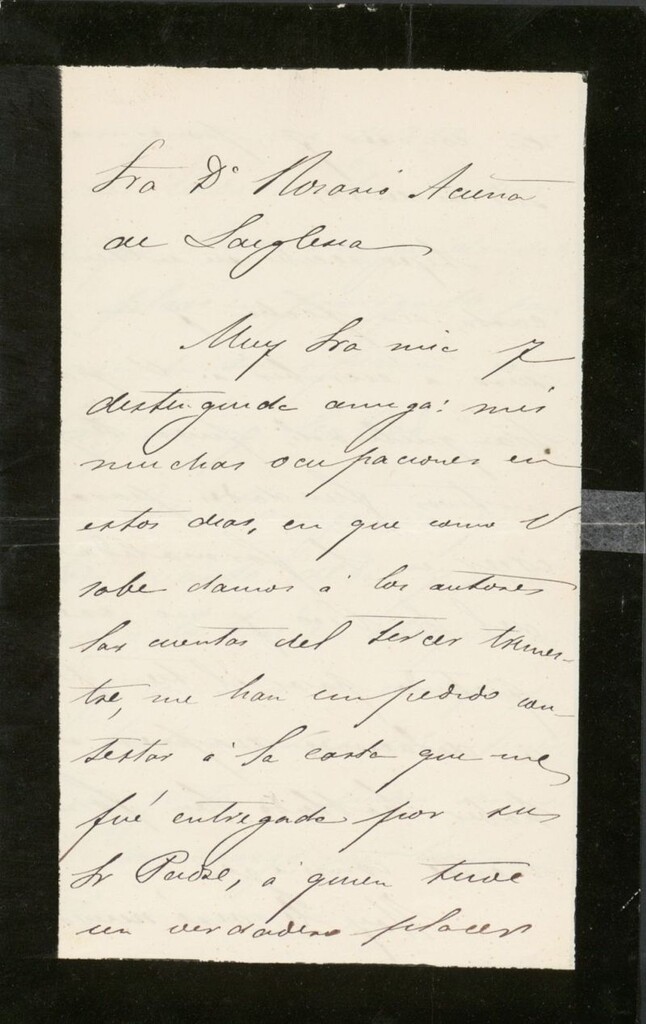 Sra Dª Rosario Acuña
de Laiglesia
Muy Sra mia y
distinguida amiga: mis
muchas ocupaciones en
estos dias, en que como V
sabe damos á los autores
las cuentas del tercer trimes-
tre, me han impedido con-
testar á la carta que me
fué entregada por su
Sr Padre, á quien tuve
un verdadero placer